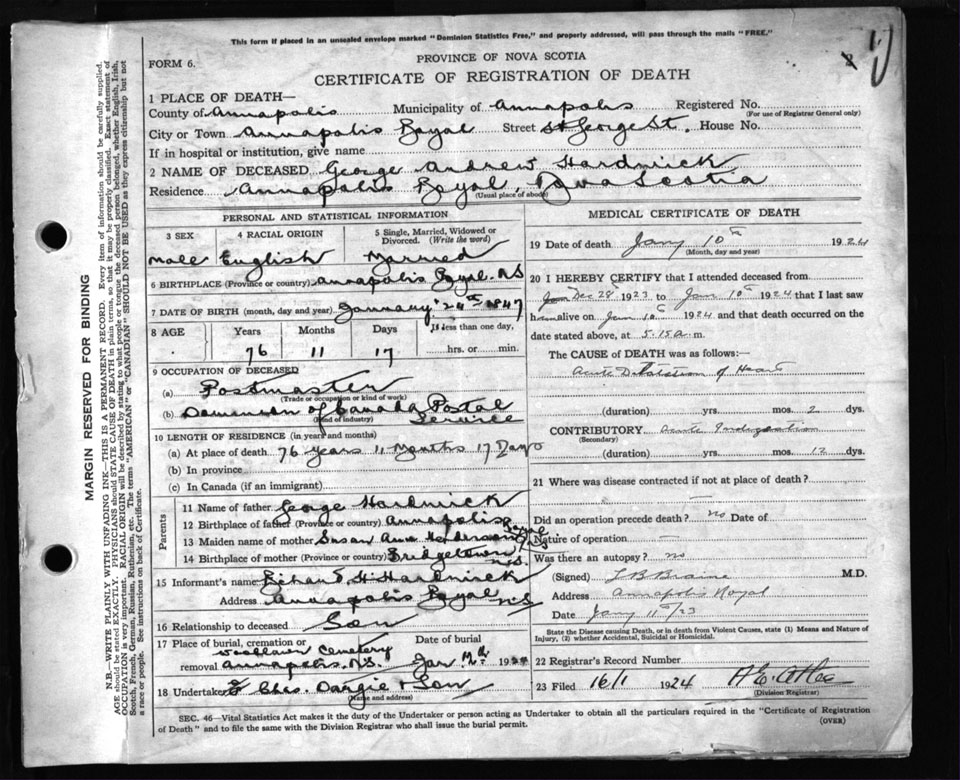 This form if placed in an unsealed envelope marked "Dominion Statistics Free," and properly addressed, will pass through the mails "FREE."
FORM 6.
PROVINCE OF NOVA SCOTIA
CERTIFICATE OF REGISTRATION OF DEATH
1 PLACE OF DEATH—
County of Annapolis Municipality of Annapolis Registered No.
(For use of Registrar General only)
City or Town Annapolis Royal Street St George St. House No.
If in hospital or institution, give name
2 NAME OF DECEASED George Andrew Hardwick
Residence Annapolis Royal, Nova Scotia
(Usual place of abode)
PERSONAL AND STATISTICAL INFORMATION
3 SEX 4 RACIAL ORIGIN 5 Single, Married, Widowed or Divorced. (Write the word)
Male English Married
6 BIRTHPLACE (Province or country) Annapolis Royal. N.S
7 DATE OF BIRTH (month, day and year) January 24th 1847
8 AGE Years Months Days If less than one day,
76 11 17 hrs. or min.
9 OCCUPATION OF DECEASED
(a) Postmaster
(Trade or occupation or kind of work)
(b) Dominion of Canada Postal Service
(Kind of industry)
10 LENGTH OF RESIDENCE (in years and months)
(a) At place of death 76 years 11 Months 17 Days
(b) In province
(c) In Canada (if an immigrant)
Parents
11 Name of father George Hardwick
12 Birthplace of father (Province or country) Annapolis Royal NS
13 Maiden name of mother Susan Ann Henderson
14 Birthplace of mother (Province or country) Bridgetown N.S.
15 Informant's name Richard H. Hardwick
Address Annapolis Royal N.S
16 Relationship to deceased Son
17 Place of burial, cremation or removal Woodlawn Cemetery Annapolis. N.S. Date of burial Jan 12th 1924
18 Undertaker Chas. Dargie & Son
(Name and address)
MEDICAL CERTIFICATE OF DEATH
19 Date of death Jany 10th 1924
(Month, day and year)
20 I HEREBY CERTIFY that I attended deceased from
Dec 28 1923 to Jan 10th 1924 that I last saw
him alive on Jan 10th 1924 and that death occurred on the
date stated above, at 5.15 a. m.
The CAUSE of DEATH was as follows:—
Acute Dilatation of Heart
(duration) yrs. mos. 2 dys.
CONTRIBUTORY Acute Indigestion
(Secondary)
(duration) yrs. mos. 12 dys.
21 Where was disease contracted if not at place of death?
Did an operation precede death? no Date of
Nature of operation
Was there an autopsy? no
(Signed) L B Braine M.D.
Address Annapolis Royal
Date Jany 11th/23
State the Disease causing Death, or in death from Violent Causes, state (1) Means and Nature of Injury, (2) whether Accidental, Suicidal or Homicidal.
22 Registrar's Record Number
23 Filed 16/1 1924
(Division Registrar)
SEC. 46—Vital Statistics Act makes it the duty of the Undertaker or person acting as Undertaker to obtain all the particulars required in the "Certificate of Registration
of Death" and to file the same with the Division Registrar who shall issue the burial permit. (OVER)
MARGIN RESERVED FOR BINDING
N.B.—WRITE PLAINLY WITH UNFADING INK—THIS IS A PERMANENT RECORD. Every item of information should be carefully supplied.
AGE should be stated EXACTLY. PHYSICIANS should STATE CAUSE OF DEATH in plain terms, so that it may be properly classified. Exact statement of
OCCUPATION is very important. RACIAL ORIGIN will be described by stating to what people or tongue the deceased person belonged, whether English, Irish,
Scotch, French, German, Russian, Ruthenian, etc. The terms "AMERICAN" or "CANADIAN" SHOULD NOT BE USED as they express citizenship but not
a race or people. See instructions on back of Certificate.